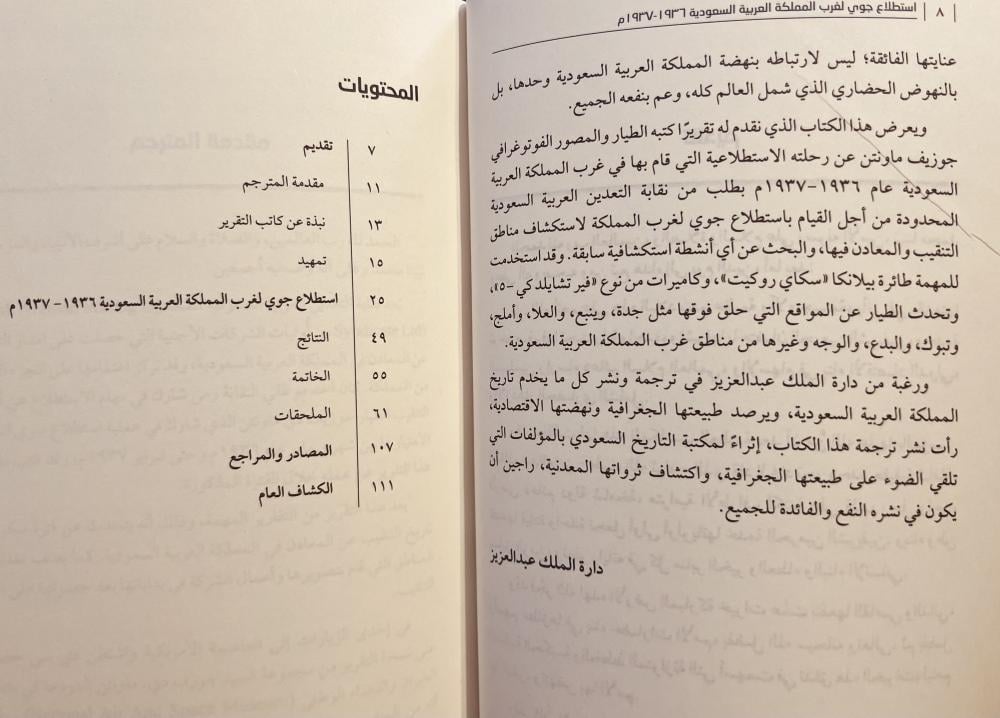 استطلاع جوي لغرب المملكة العربية السعودية ١٩٣٦-١٩٣٧م | ٨ |
عنايتها الفائقة؛ ليس لارتباطه بنهضة المملكة العربية السعودية وحدها، بل
بالنهوض الحضاري الذي شمل العالم كله، وعم بنفعه الجميع.
ويعرض هذا الكتاب الذي نقدم له تقريرًا كتبه الطيار والمصور الفوتوغرافي
جوزيف ماونتن عن رحلته الاستطلاعية التي قام بها في غرب المملكة العربية
السعودية عام ١٩٣٦-١٩٣٧م بطلب من نقابة التعدين العربية السعودية
المحدودة من أجل القيام باستطلاع جوي لغرب المملكة لاستكشاف مناطق
التنقيب والمعادن فيها، والبحث عن أي أنشطة استكشافية سابقة. وقد استخدمت
للمهمة طائرة بيلانكا «سكاي روكيت»، وكاميرات من نوع «فير تشايلد كي -٥»،
وتحدث الطيار عن المواقع التي حلق فوقها مثل جدة، وينبع، والعلا، وأملج،
وتبوك، والبدع، والوجه وغيرها من مناطق غرب المملكة العربية السعودية.
ورغبة من دارة الملك عبدالعزيز في ترجمة ونشر كل ما يخدم تاريخ
المملكة العربية السعودية، ويرصد طبيعتها الجغرافية ونهضتها الاقتصادية،
رأت نشر ترجمة هذا الكتاب، إثراءً لمكتبة التاريخ السعودي بالمؤلفات التي
تلقي الضوء على طبيعتها الجغرافية، واكتشاف ثرواتها المعدنية، راجين أن
يكون في نشره النفع والفائدة للجميع.
دارة الملك عبدالعزيز
المحتويات
٧ تقديم
١١ مقدمة المترجم
١٣ نبذة عن كاتب التقرير
١٥ تمهيد
٢٥ استطلاع جوي لغرب المملكة العربية السعودية ١٩٣٦-١٩٣٧م
٤٩ النتائج
٥٥ الخاتمة
٦١ الملحقات
١٠٧ المصادر والمراجع
١١١ الكشاف العام